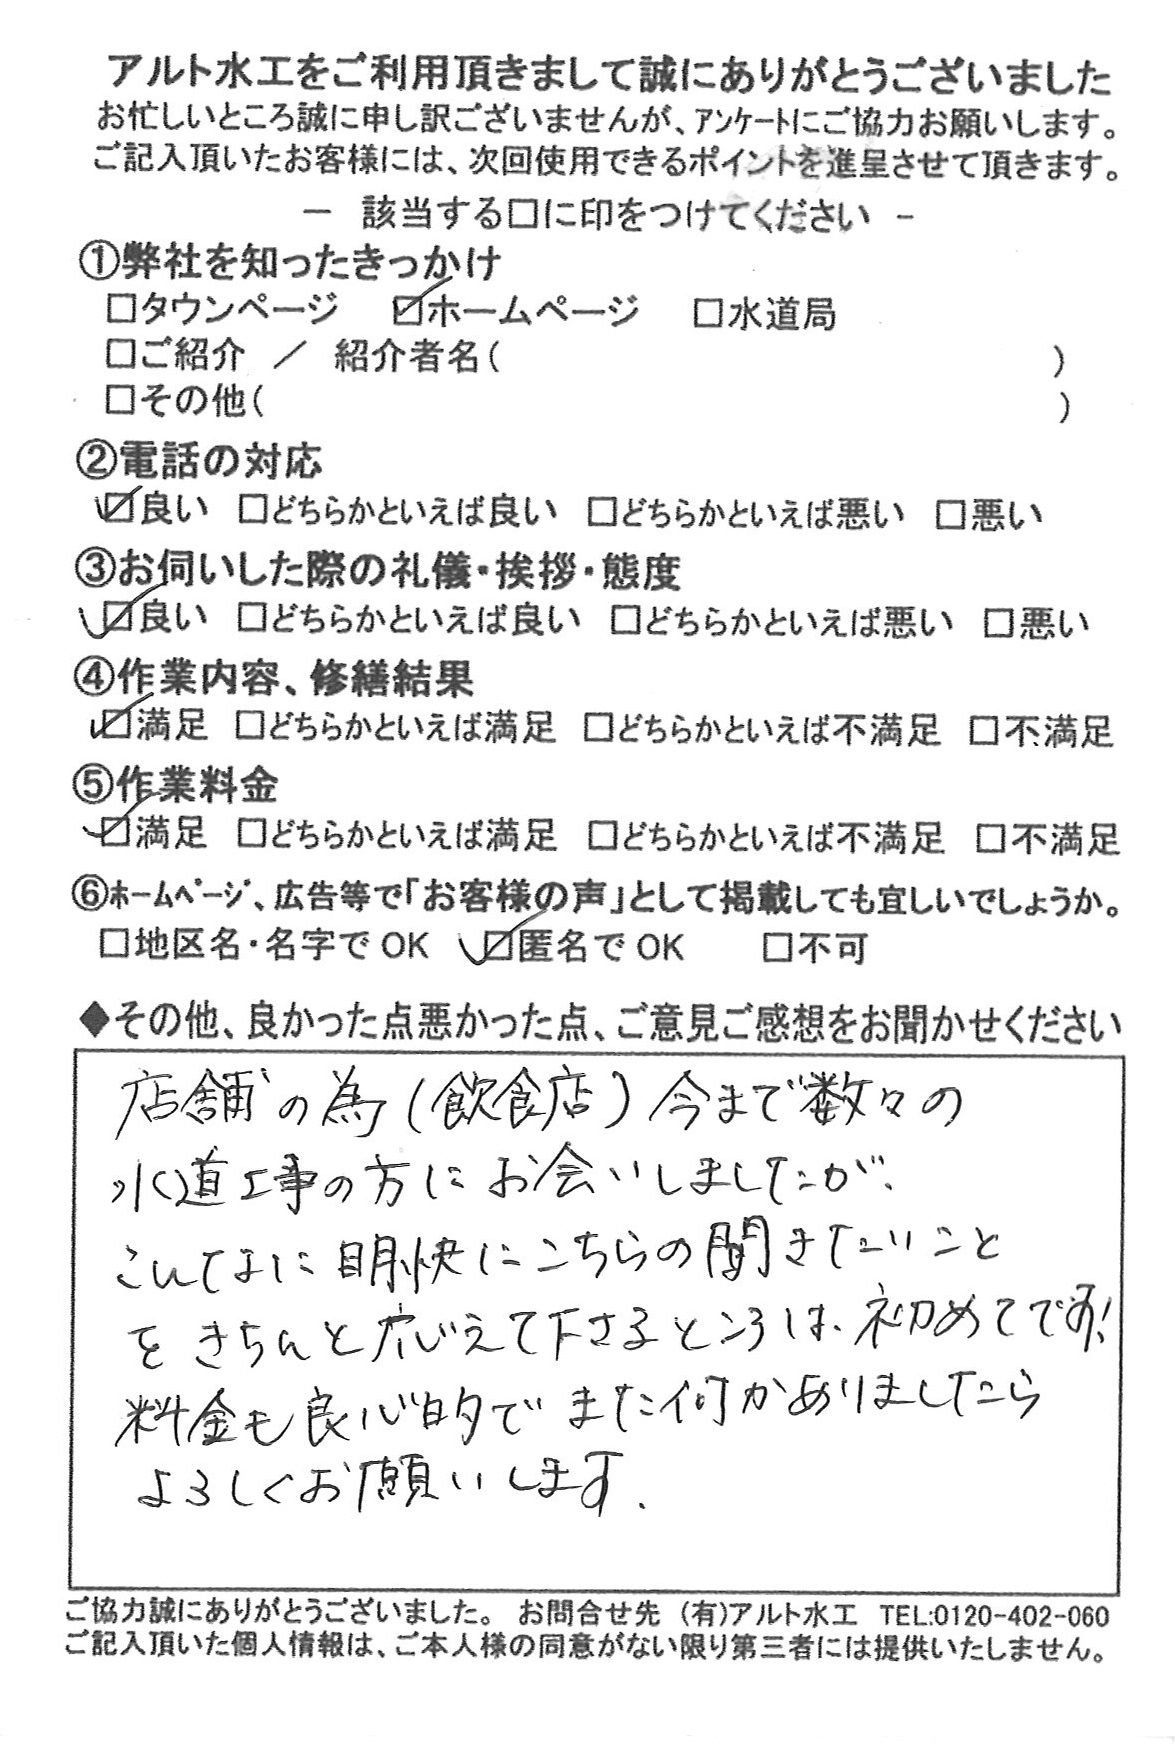 アルト水工をご利用頂きまして誠にありがとうございました
お忙しいところ誠に申し訳ございませんが、ｱﾝｹｰﾄにご協力お願いします。
ご記入頂いたお客様には、次回使用できるポイントを進呈させて頂きます。
－ 該当する□に印をつけてください －
①弊社を知ったきっかけ
□タウンページ ☑ホームページ □水道局
□ご紹介 ／ 紹介者名( )
□その他( )
②電話の対応
☑良い □どちらかといえば良い □どちらかといえば悪い □悪い
③お伺いした際の礼儀・挨拶・態度
☑良い □どちらかといえば良い □どちらかといえば悪い □悪い
④作業内容、修繕結果
☑満足 □どちらかといえば満足 □どちらかといえば不満足 □不満足
⑤作業料金
☑満足 □どちらかといえば満足 □どちらかといえば不満足 □不満足
⑥ﾎｰﾑﾍﾟｰｼﾞ、広告等で｢お客様の声｣として掲載しても宜しいでしょうか。
□地区名・名字でOK ☑匿名でOK □不可
◆その他、良かった点悪かった点、ご意見ご感想をお聞かせください
店舗の為(飲食店)今まで数々の
水道工事の方にお会いしましたが、
こんなに明快にこちらの聞きたいこと
をきちんと応えて下さるところは、初めてです!
料金も良心的でまた何かありましたら
よろしくお願いします.
ご協力誠にありがとうございました。 お問合せ先 (有)アルト水工 TEL:0120-402-060
ご記入頂いた個人情報は、ご本人様の同意がない限り第三者には提供いたしません。